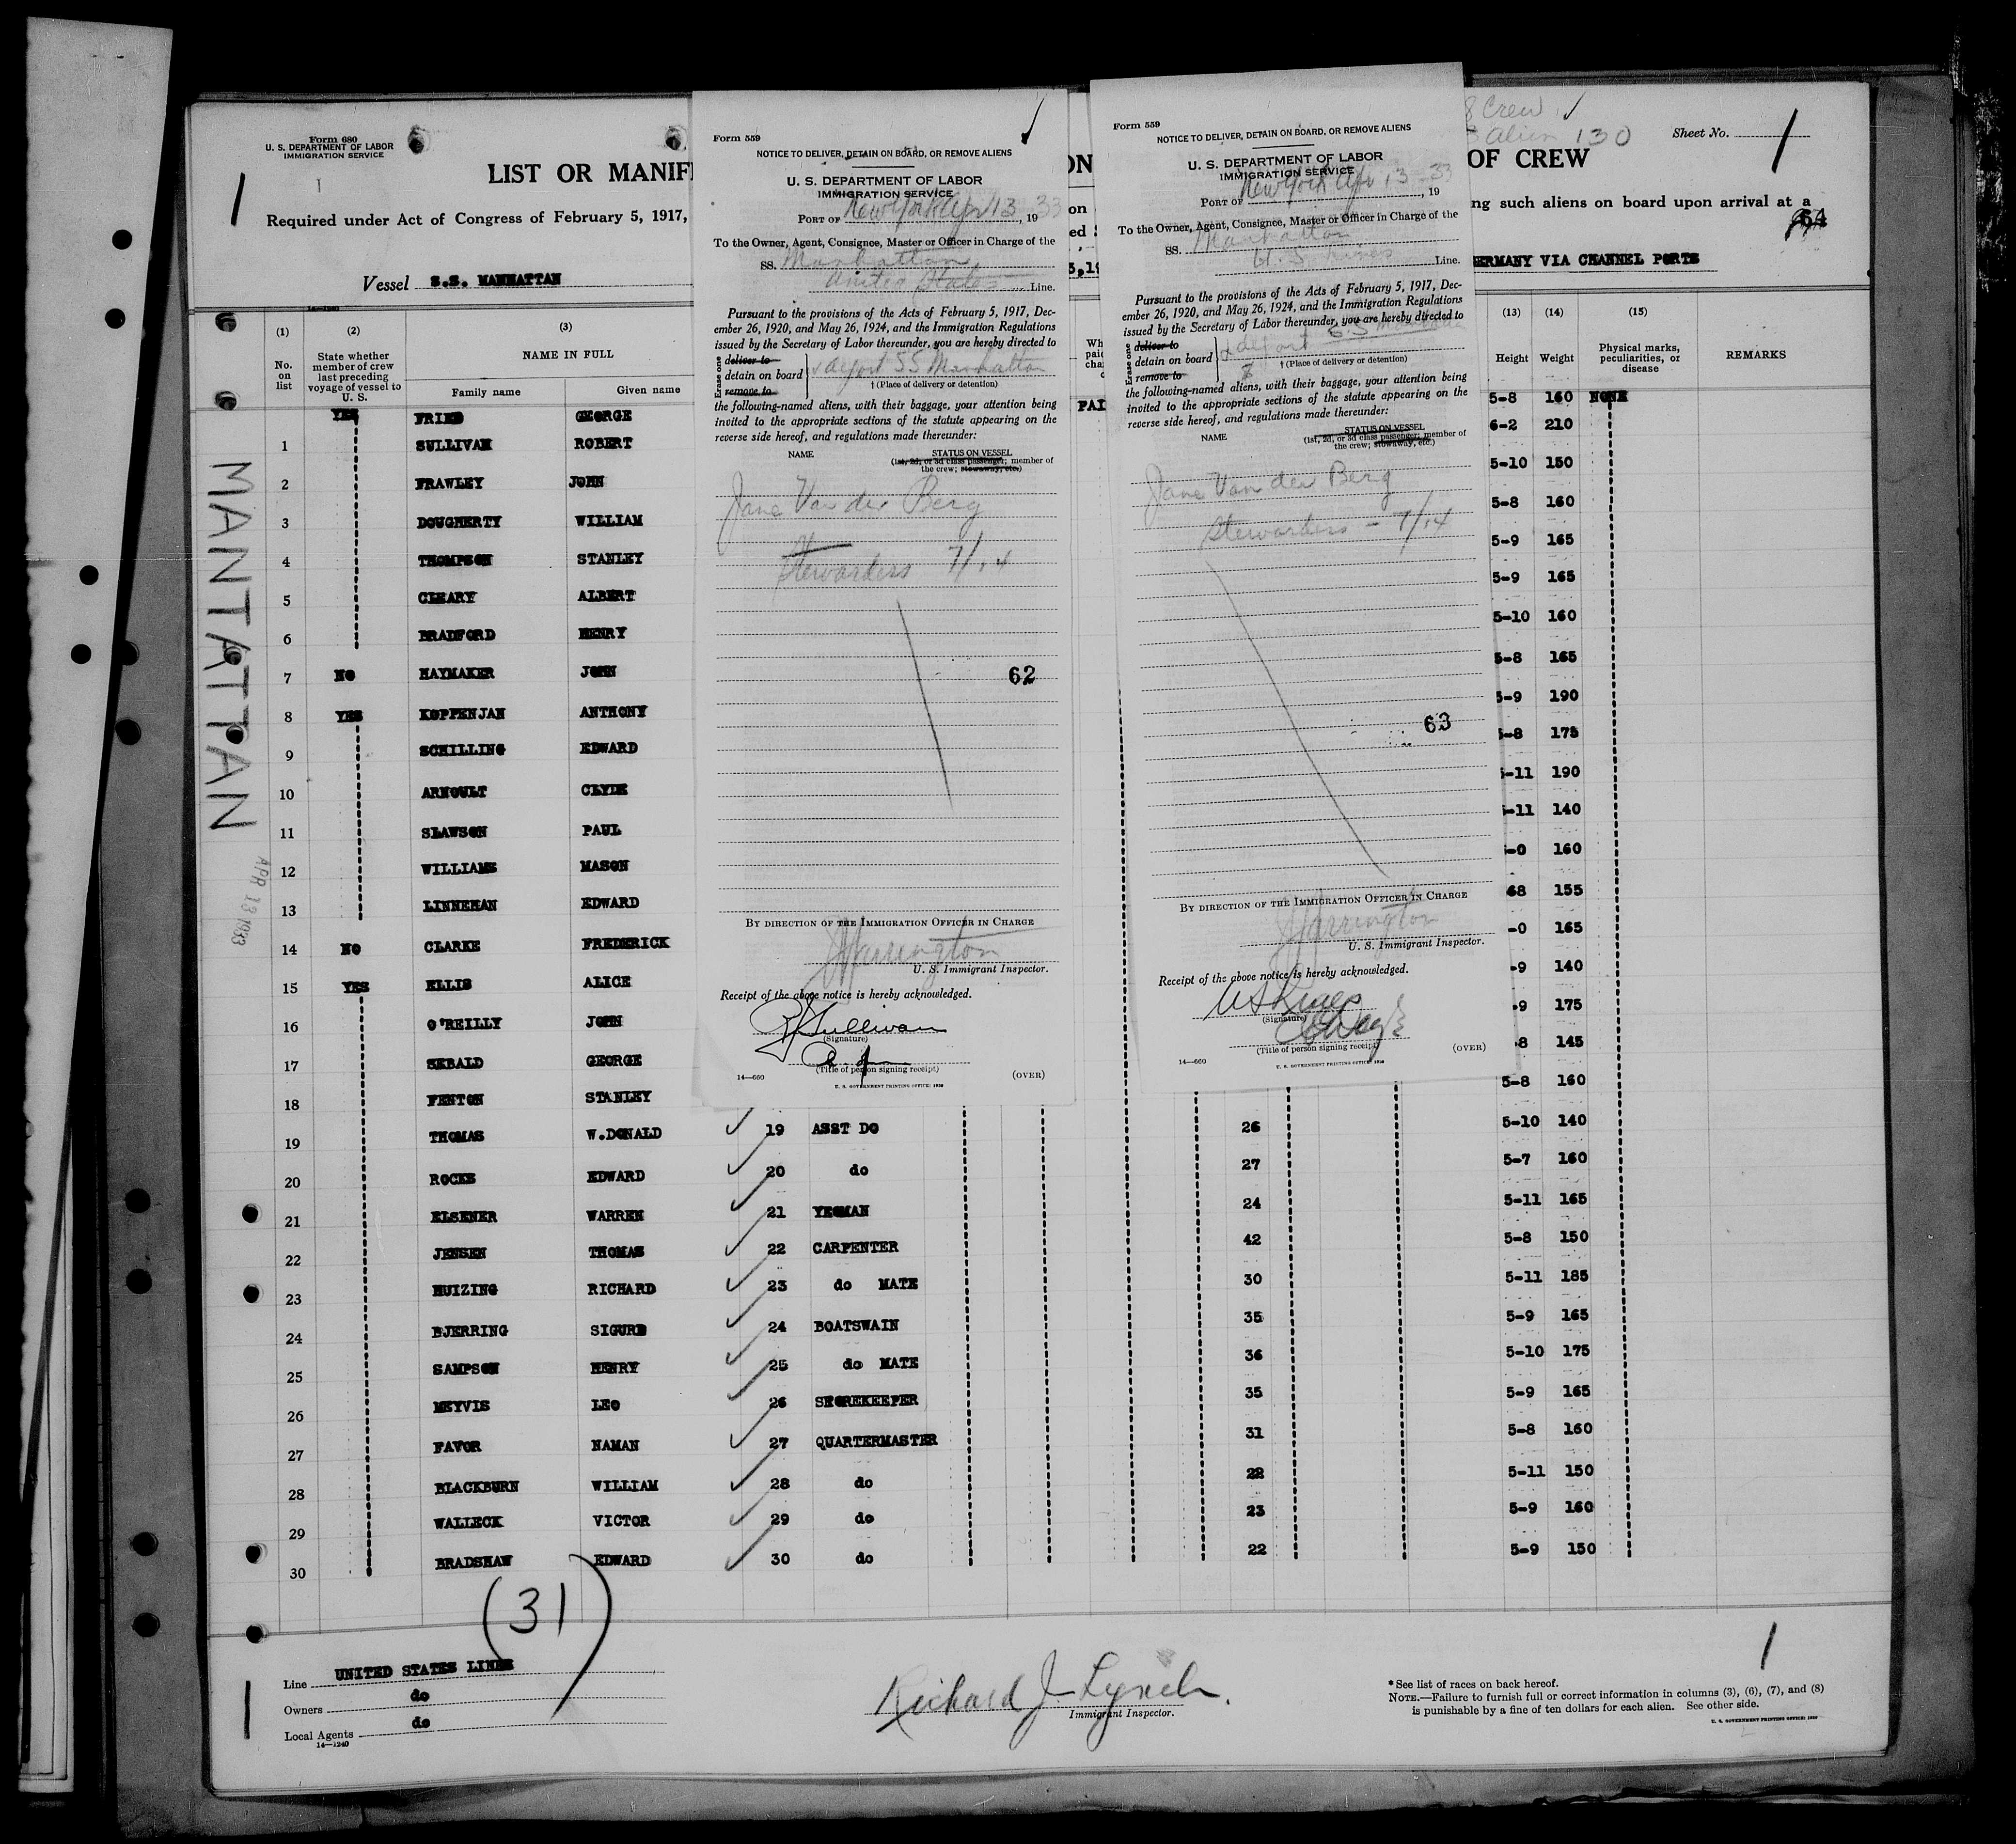 Form 680
U. S. DEPARTMENT OF LABOR
IMMIGRATION SERVICE
LIST OR MANIF
Required under Act of Congress of February 5, 1917,
Vessel S.S. MANHATTAN
(1) (2) (3)
No. on list
State whether member of crew last preceding voyage of vessel to U. S.
NAME IN FULL
Family name Given name
YES FRIED GEORGE
1 SULLIVAN ROBERT
2 FRAWLEY JOHN
3 DOUGHERTY WILLIAM
4 THOMPSON STANLEY
5 CLEARY ALBERT
6 BRADFORD HENRY
7 NO HAYMAKER JOHN
8 YES KOPPENJAN ANTHONY
9 SCHILLING EDWARD
10 ARNOULT CLYDE
11 SLAWSON PAUL
12 WILLIAMS MASON
13 LINNEHAN EDWARD
14 NO CLARKE FREDERICK
15 YES ELLIS ALICE
16 O'REILLY JOHN
17 SEBALD GEORGE
18 FENTON STANLEY
19 THOMAS W.DONALD 19 ASST DO 26 5-10 140
20 ROCKE EDWARD 20 do 27 5-7 160
21 ELSENER WARREN 21 YEOMAN 24 5-11 165
22 JENSEN THOMAS 22 CARPENTER 42 5-8 150
23 HUIZING RICHARD 23 do MATE 30 5-11 185
24 BJERRING SIGURD 24 BOATSWAIN 35 5-9 165
25 SAMPSON HENRY 25 do MATE 36 5-10 175
26 MEYVIS LEO 26 STOREKEEPER 35 5-9 165
27 FAVOR NAMAN 27 QUARTERMASTER 31 5-8 160
28 BLACKBURN WILLIAM 28 do 22 5-11 150
29 WALLECK VICTOR 29 do 23 5-9 160
30 BRADSHAW EDWARD 30 do 22 5-9 150
(31)
MANTATTAN
APR 13 1933
Line UNITED STATES LINES
Owners do
Local Agents do
14—1240
Richard J. Lynch.
Immigrant Inspector.
*See list of races on back hereof.
NOTE.—Failure to furnish full or correct information in columns (3), (6), (7), and (8)
is punishable by a fine of ten dollars for each alien. See other side.
U. S. GOVERNMENT PRINTING OFFICE: 1930
1
Form 559
NOTICE TO DELIVER, DETAIN ON BOARD, OR REMOVE ALIENS
U. S. DEPARTMENT OF LABOR
IMMIGRATION SERVICE
PORT OF New York Apr 13, 1933
To the Owner, Agent, Consignee, Master or Officer in Charge of the
SS. Manhattan
United States Line.
Pursuant to the provisions of the Acts of February 5, 1917, Dec-
ember 26, 1920, and May 26, 1924, and the Immigration Regulations
issued by the Secretary of Labor thereunder, you are hereby directed to
Erase one
deliver to
detain on board SS Manhattan
remove to
† (Place of delivery or detention)
the following-named aliens, with their baggage, your attention being
invited to the appropriate sections of the statute appearing on the
reverse side hereof, and regulations made thereunder:
NAME STATUS ON VESSEL
(1st, 2d, or 3d class passenger; member of
the crew; stowaway, etc.)
Jane Van der Berg
Stewardess 7/14
62
BY DIRECTION OF THE IMMIGRATION OFFICER IN CHARGE
Harrington
U. S. Immigrant Inspector.
Receipt of the above notice is hereby acknowledged.
R Sullivan
(Signature)
(Title of person signing receipt)
14—660 (OVER)
U. S. GOVERNMENT PRINTING OFFICE: 1930
Form 559
NOTICE TO DELIVER, DETAIN ON BOARD, OR REMOVE ALIENS
U. S. DEPARTMENT OF LABOR
IMMIGRATION SERVICE
PORT OF New York Apr 13 - 33, 19
To the Owner, Agent, Consignee, Master or Officer in Charge of the
SS. Manhattan
U.S. Lines Line.
Pursuant to the provisions of the Acts of February 5, 1917, Dec-
ember 26, 1920, and May 26, 1924, and the Immigration Regulations
issued by the Secretary of Labor thereunder, you are hereby directed to
Erase one
deliver to
detain on board
remove to
† (Place of delivery or detention)
the following-named aliens, with their baggage, your attention being
invited to the appropriate sections of the statute appearing on the
reverse side hereof, and regulations made thereunder:
NAME STATUS ON VESSEL
(1st, 2d, or 3d class passenger; member of
the crew; stowaway, etc.)
Jane Van der Berg
Stewardess - 7/14
63
BY DIRECTION OF THE IMMIGRATION OFFICER IN CHARGE
Harrington
U. S. Immigrant Inspector.
Receipt of the above notice is hereby acknowledged.
US Lines
(Signature)
(Title of person signing receipt)
14—660 (OVER)
U. S. GOVERNMENT PRINTING OFFICE: 1930
Crew
alien 130
Sheet No. 1
OF CREW
ng such aliens on board upon arrival at a
64
GERMANY VIA CHANNEL PORTS
(13) (14) (15)
Height Weight Physical marks, peculiarities, or disease REMARKS
5-8 160 NONE
6-2 210
5-10 150
5-8 160
5-9 165
5-9 165
5-10 160
5-8 165
5-9 190
5-8 175
5-11 190
5-11 140
-0 160
68 155
-0 165
-9 140
-9 175
-8 145
5-8 160